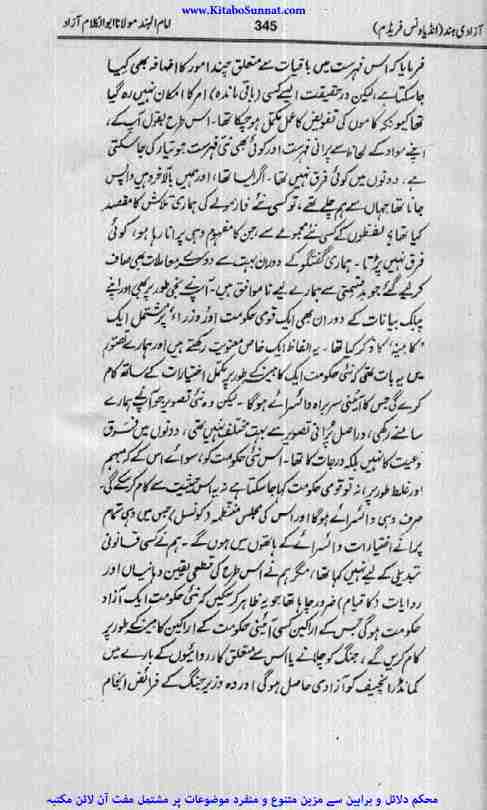 www.KitaboSunnat.com
آزادیٔ ہند (انڈیا ونس فریڈم) 345 امام الہند مولانا ابوالکلام آزاد
فرمایا کہ اس فہرست میں باقیات سے متعلق چند امور کا اضافہ بھی کیا
جاسکتا ہے، لیکن درحقیقت ایسے کسی (باقی ماندہ) امر کا امکان نہیں رہ گیا
تھا کیونکہ کاموں کی تفویض کا عمل مکمل ہو چکا تھا۔ اس طرح بقول آپ کے،
اپنے مواد کے لحاظ سے پرانی فہرست اور کوئی بھی نئی فہرست جو تیار کی جاسکتی
ہے، دونوں میں کوئی فرق نہیں تھا۔ اگر ایسا تھا، اور ہمیں بالآخر وہیں واپس
جانا تھا جہاں سے ہم چلے تھے، تو کسی نئے فارمولے کی ہماری تلاش کا مقصد
کیا تھا؟ لفظوں کے کسی نئے مجموعے سے، جن کا مفہوم وہی پرانا رہا ہو، کوئی
فرق نہیں پڑتا۔ ہماری گفتگو کے دوران بہت سے دوسرے معاملات بھی صاف
کرلیے گئے جو بدقسمتی سے ہمارے لیے ناموافق ہیں۔ آپ نے نجی طور پر بھی اور اپنے
پبلک بیانات کے دوران بھی ایک قومی حکومت اور وزراء پر مشتمل ایک
'کابینہ' کا ذکر کیا تھا۔ یہ الفاظ ایک خاص معنویت رکھتے ہیں اور ہمارے تصور
میں یہ بات تھی کہ نئی حکومت ایک کابینہ کے طور پر مکمل اختیارات کے ساتھ کام
کرے گی جس کا آئینی سربراہ وائسرائے ہوگا۔ لیکن وہ نئی تصویر جو آپ نے ہمارے
سامنے رکھی، دراصل پرانی تصویر سے بہت مختلف نہیں تھی، دونوں میں فرق
نوعیت کا نہیں بلکہ درجات کا تھا۔ اس نئی حکومت کو، سوائے اس کے کہ مبہم
اور غلط طور پر، نہ تو قومی حکومت کہا جاسکتا ہے نہ یہ اس حیثیت سے کام کرسکے گی
صرف وہی وائسرائے ہوگا اور اس کی مجلس منتظمہ (کونسل) جس میں وہی تمام
پرانے اختیارات وائسرائے کے ہاتھوں میں ہوں گے۔ ہم نے کسی قانونی
تبدیلی کے لیے نہیں کہا تھا، مگر ہم نے اس طرح کی قطعی یقین دہانیاں اور
روایات (کا قیام) ضرور چاہا تھا جو یہ ظاہر کرسکیں کہ نئی حکومت ایک آزاد
حکومت ہوگی جس کے اراکین کسی آئینی حکومت کے اراکین کابینہ کے طور پر
کام کریں گے، جنگ کو چلانے یا اس سے متعلق کارروائیوں کے بارے میں
کمانڈر انچیف کو آزادی حاصل ہوگی اور وہ وزیر جنگ کے فرائض انجام
محکم دلائل و براہین سے مزین متنوع و منفرد موضوعات پر مشتمل مفت آن لائن مکتبہ